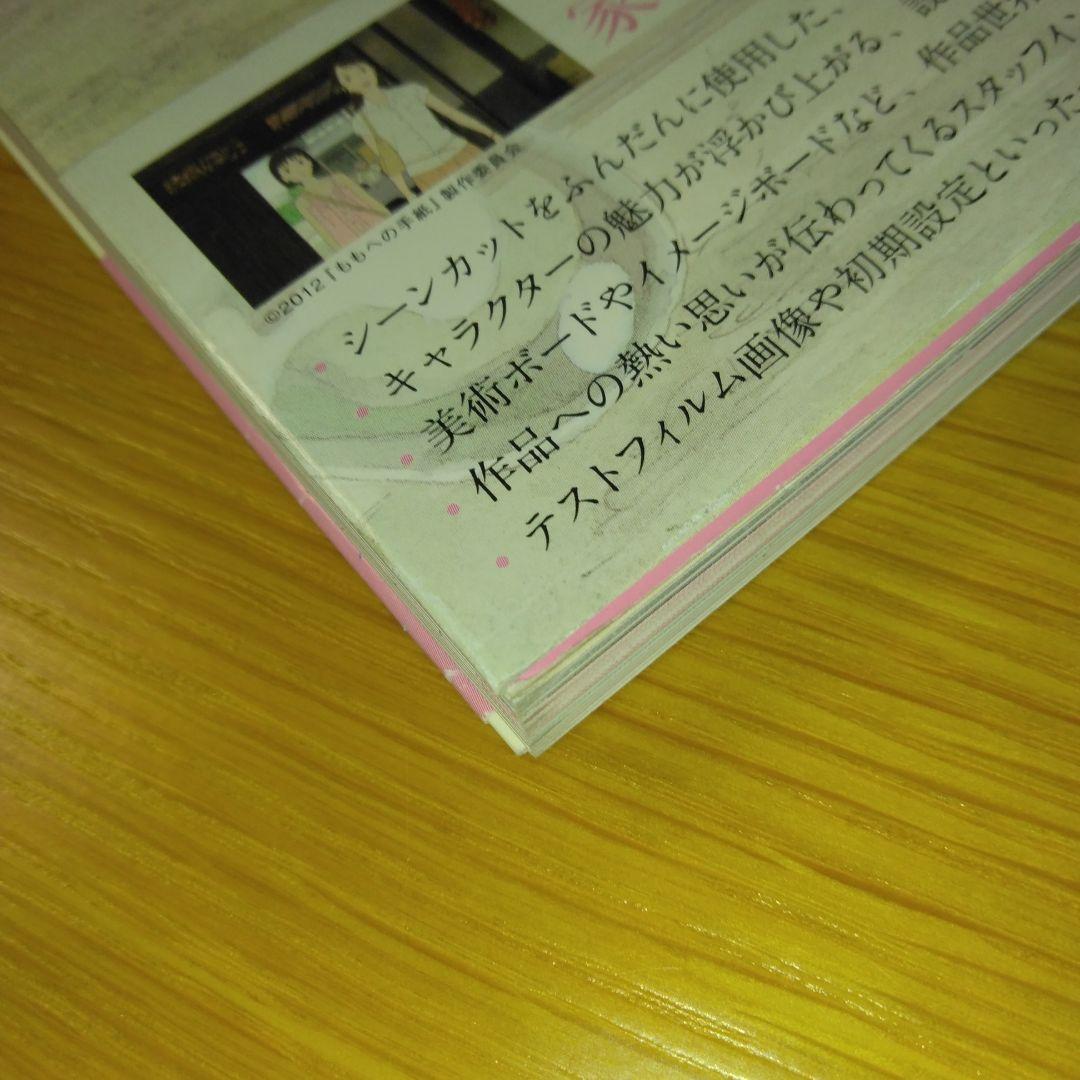 家
©2012「ももへの手紙」製作委員会
・シーンカットをふんだんに使用した、
・キャラクターの魅力が浮かび上がる、設
・美術ボードやイメージボードなど、作品世界
・作品への熱い思いが伝わってくるスタッフイン
・テストフィルム画像や初期設定といった